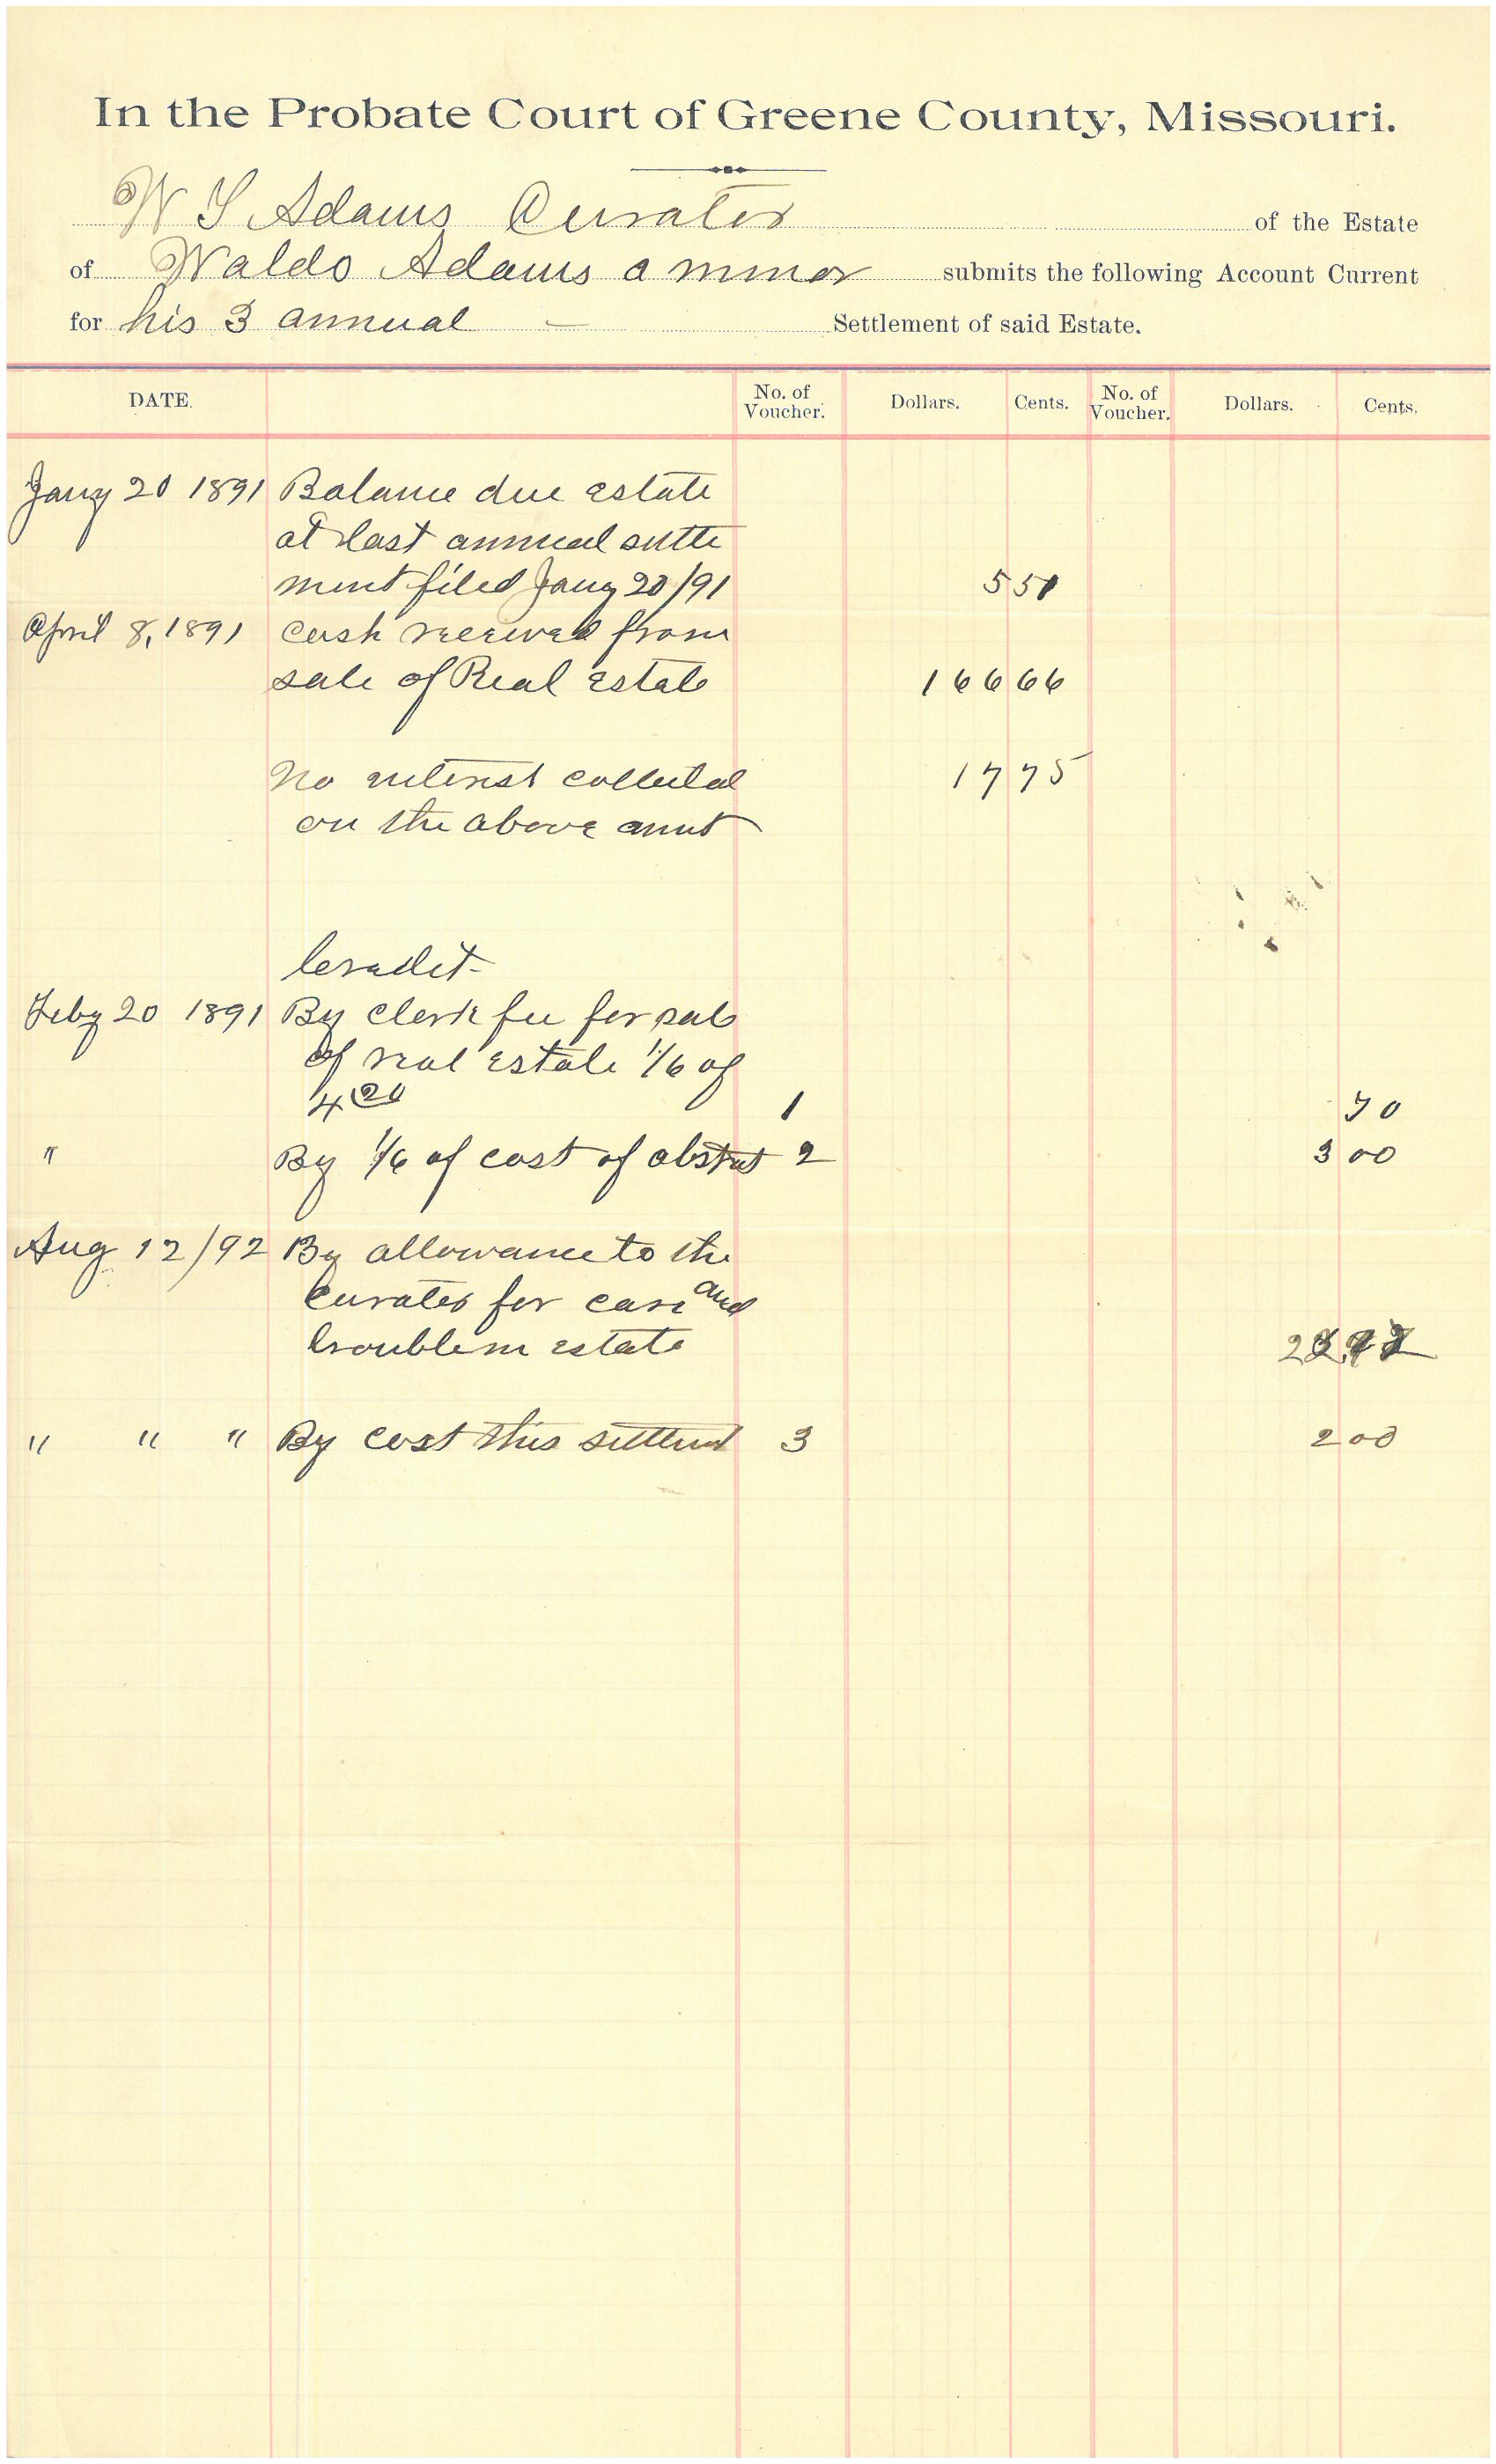 In the Probate Court of Greene County, Missouri.
W S Adams Curator of the Estate
of Waldo Adams a minor submits the following Account Current
for his 3 annual Settlement of said Estate.
DATE. No. of Voucher. Dollars. Cents. No. of Voucher. Dollars. Cents.
Jany 20 1891 Balance due estate
at last annual settle
ment filed Jany 20/91 5 51
April 8, 1891 Cash received from
sale of Real Estate 166 66
No interest collected 17 75
on the above amt
Creadit
Feby 20 1891 By Clerk fee for sale
of real estate 1/6 of
4 20 1 70
" By 1/6 of cost of abstrct 2 3 00
Aug 12/92 By allowance to the
Curator for care and
trouble in estate
" " " By Cost this settlemt 3 2 00